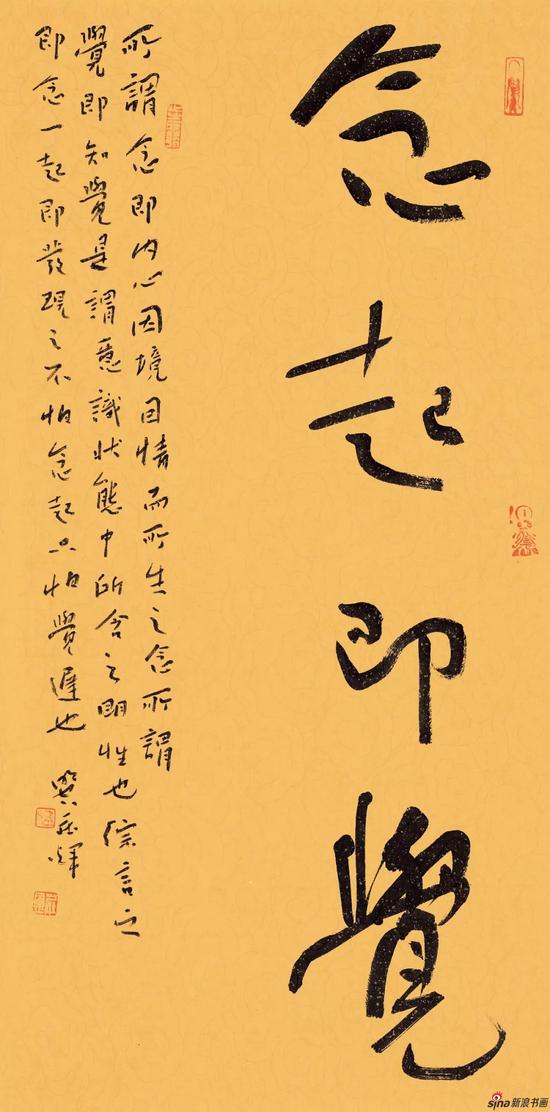 念起即覺
所謂念即内心因境因情而所生之念所謂
覺即知覺是謂意識狀態中所含之明性也綜言之
即念一起即發現之不怕念起只怕覺遲也
sina新浪书画